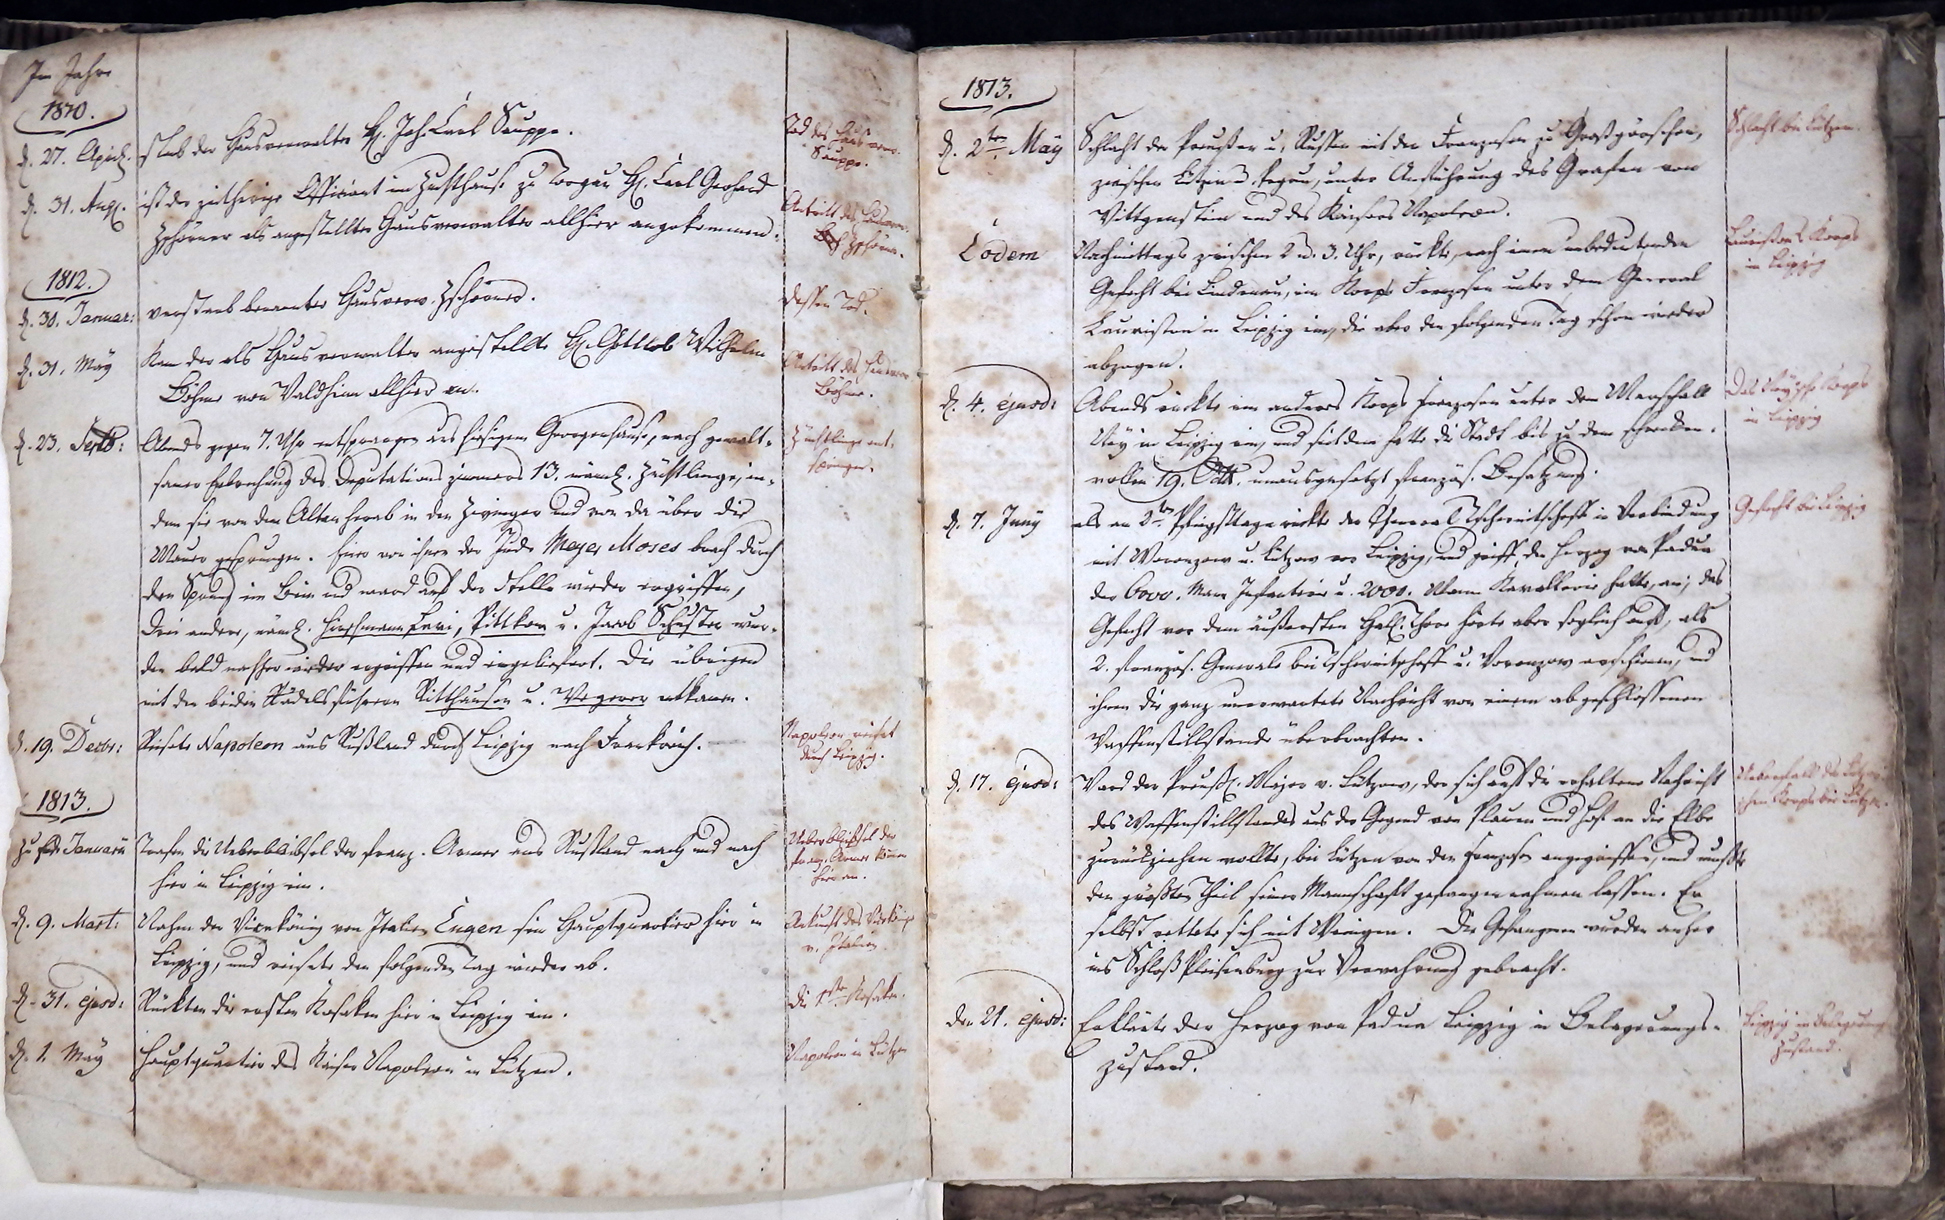 Im Jahre
1810.
d. 27. April. starb der Hausverwalter H. Joh. Carl Sauppe. Tod des Haus verw. Sauppe.
d. 31. Aug. ist der zeitherige Officiant im Zuchthause zu Torgau H. Carl Gerhard Antritt des Hausverw.
Zschörner als angestellter Hausverwalter allhier angekommen. Zschörner.
1812.
d. 30. Januar: verstarb benannter Hausverw. Zschörner. dessen Tod.
d. 31. May Kam der als Hausverwalter angestellte H. Gottlob Wilhelm Antritt des
Böhme von Waldheim allhier an. Böhme.
d. 23. Septb: Abends gegen 7. Uhr entsprangen aus hiesigem Georgenhause, nach gewalt- Züchtlinge ent-
samer Erbrechung des Deputations zimmers 13. männl. Züchtlinge, in- springen.
dem sie von dem Altan herab in den Zwinger und von da über die
Mauer gesprungen. Einer von ihnen der Jude Meyer Moses brach durch
den Sprung ein Bein und ward auf der Stelle wieder ergriffen,
drei andere, nämlich Hirschmann Levi, Pittkow u. Jacob Schuster wur-
den bald nachher wieder ergriffen und eingeliefert. Die übrigen
mit den beiden Rädelsführern Ritthausen u. Wegener entkamen.
d. 19. Decbr: Reiste Napoleon aus Rußland durch Leipzig nach Frankreich. Napoleon reiset
durch Leipzig.
1813.
Zu Januarii Trafen die Ueberbleibsel der franz. Armee aus Rußland nach und nach Ueberbleibsel der
hier in Leipzig ein. franz. Armee
hier an.
d. 9. Mart: Nahm der Vicekönig von Italien Eugen sein Hauptquartier hier in Ankunft des Vicekönigs
Leipzig, und reisete den folgenden Tag wieder ab. v. Italien.
d. 31. ejusd: Rückten die ersten Kosaken hier in Leipzig ein. die 1sten Kosaken.
d. 1. May Hauptquartier des Kaiser Napoleon in Lützen. Napoleon in Lützen
1813.
d. 2ten May Schlacht der Preußen u. Russen mit den Franzosen zu Großgörschen, Schlacht bei Lützen.
zwischen Lützen u. Pegau, unter Anführung des Grafen von
Wittgenstein und des Kaisers Napoleon.
Eodem Nachmittags zwischen 2 u. 3. Uhr, rückte, nach einem unbedeutenden Lauristons Korps
Gefecht bei Lindenau, ein Korps Franzosen unter dem General in Leipzig
Lauriston in Leipzig ein, die aber den folgenden Tag schon wieder
abzogen.
d. 4. ejusd: Abends rückte ein anderes Korps Franzosen unter dem Marschall Das Neysche Korps
Ney in Leipzig ein, und seitdem hatte die Stadt bis zu dem schrecken- in Leipzig
vollen 19. Octbr. unausgesetzt französ. Besatzung.
d. 7. Juny als am 2ten Pfingsttage rückte der General Tschernitscheff in Verbindung Gefecht bei Leipzig
mit Woronzow u. Lützow vor Leipzig, und griff den Herzog von Padua
der 6000. Mann Infanterie u. 2000. Mann Kavallerie hatte, an; das
Gefecht vor dem äußersten Hall. Thore hörte aber sogleich auf, als
2. französ. Generale bei Tschernitscheff u. Woronzow erschienen, und
ihnen die ganz unerwartete Nachricht von einem abgeschlossenen
Waffenstillstande überbrachten.
d. 17. ejusd: Ward der Preuß. Major v. Lützow, der sich auf die erhaltene Nachricht Ueberfall des Lützow-
des Waffenstillstandes aus der Gegend von Plauen und Hof an die Elbe schen Korps bei Lützen.
zurückziehen wollte, bei Lützen von den Franzosen angegriffen, und mußte
den größten Theil seiner Mannschaft gefangen nehmen lassen. Er
selbst rettete sich mit Wenigen. Die Gefangenen wurden anher
ins Schloß Pleißenburg zur Verwahrung gebracht.
den 21. ejusd: Erklärte der Herzog von Padua Leipzig in Belagerungs- Leipzig in Belagerungs
zustand. zustand.